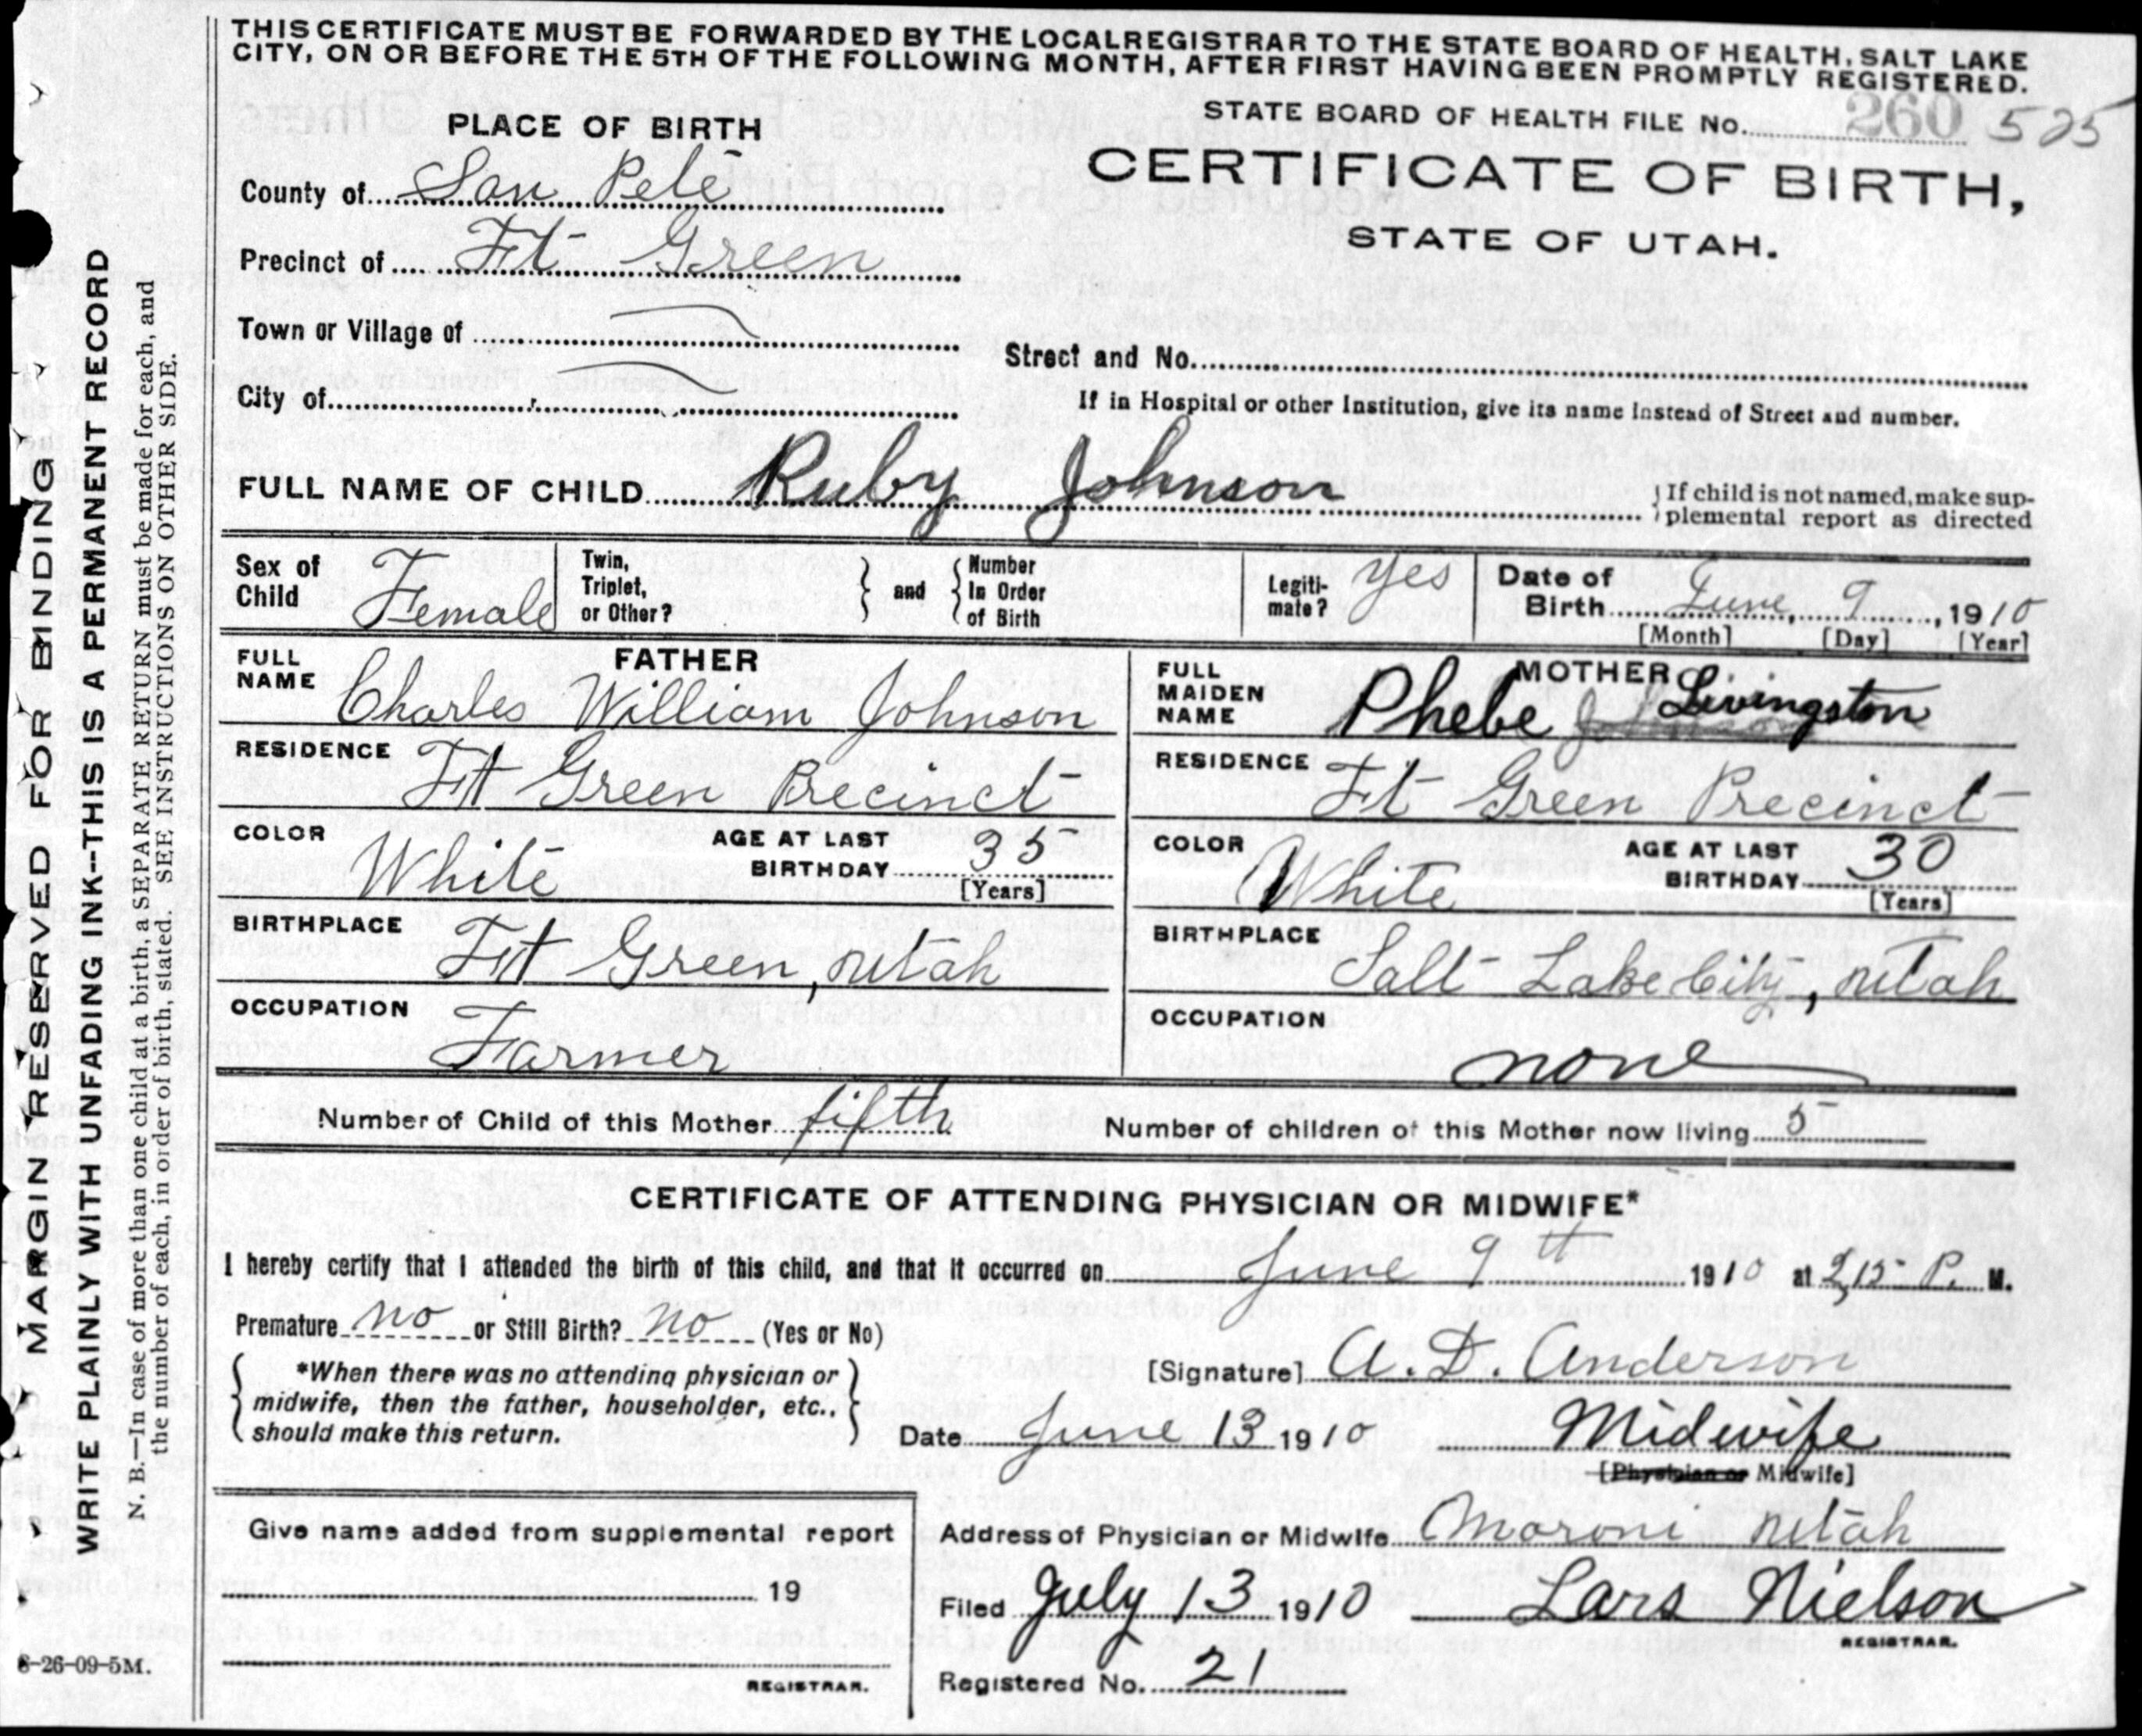 THIS CERTIFICATE MUST BE FORWARDED BY THE LOCAL REGISTRAR TO THE STATE BOARD OF HEALTH, SALT LAKE
CITY, ON OR BEFORE THE 5TH OF THE FOLLOWING MONTH, AFTER FIRST HAVING BEEN PROMPTLY REGISTERED.
STATE BOARD OF HEALTH FILE No. 260 525
PLACE OF BIRTH
CERTIFICATE OF BIRTH,
STATE OF UTAH.
County of San Pete
Precinct of Ft Green
Town or Village of
Street and No.
City of
If in Hospital or other Institution, give its name instead of Street and number.
FULL NAME OF CHILD Ruby Johnson
If child is not named, make sup-
plemental report as directed
Sex of Child Female
Twin, Triplet, or Other?
and
Number In Order of Birth
Legiti-mate? yes
Date of Birth June, 9, 1910
[Month] [Day] [Year]
FATHER
FULL NAME Charles William Johnson
RESIDENCE Ft Green Precinct
COLOR White
AGE AT LAST BIRTHDAY 35
[Years]
BIRTHPLACE Ft Green, Utah
OCCUPATION Farmer
MOTHER
FULL MAIDEN NAME Phebe Johnson Livingston
RESIDENCE Ft Green Precinct
COLOR White
AGE AT LAST BIRTHDAY 30
[Years]
BIRTHPLACE Salt Lake City, Utah
OCCUPATION none
Number of Child of this Mother fifth
Number of children of this Mother now living 5
CERTIFICATE OF ATTENDING PHYSICIAN OR MIDWIFE*
I hereby certify that I attended the birth of this child, and that it occurred on June 9th 1910 at 2,15 P. M.
Premature no or Still Birth? no (Yes or No)
*When there was no attending physician or
midwife, then the father, householder, etc.,
should make this return.
[Signature] A. D. Anderson
Date June 13 1910 Midwife
[Physician or Midwife]
Give name added from supplemental report
19
REGISTRAR.
Address of Physician or Midwife Moroni Utah
Filed July 13 1910 Lars Nielson
REGISTRAR.
Registered No. 21
MARGIN RESERVED FOR BINDING
WRITE PLAINLY WITH UNFADING INK--THIS IS A PERMANENT RECORD
N. B.—In case of more than one child at a birth, a SEPARATE RETURN must be made for each, and
the number of each, in order of birth, stated. SEE INSTRUCTIONS ON OTHER SIDE.
6-26-09-5M.